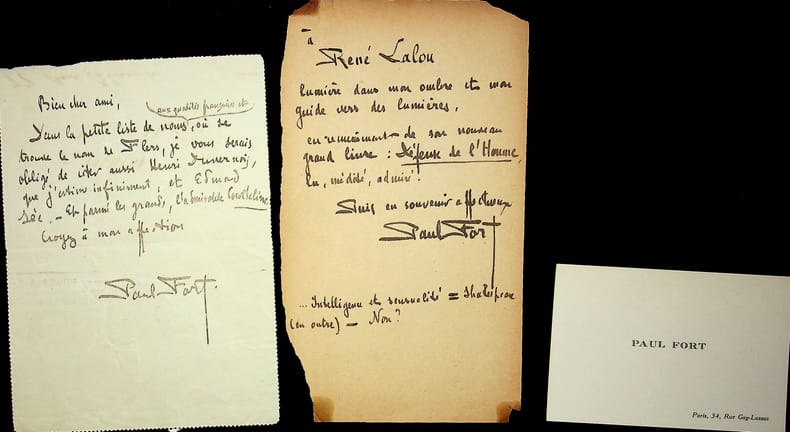 Bien cher ami,
aux qualités françaises etc
Dans la petite liste de noms, où se
trouve le nom de Flers, je vous serais
obligé de citer aussi Henri Duvernois,
que j'estime infiniment, et Edmond
Sée. – Et parmi les grands, l'admirable Courteline
Croyez à mon affection
Paul Fort.
à
René Lalou
lumière dans mon ombre et mon
guide vers des lumières,
en remerciement de son nouveau
grand livre : Défense de l'Homme,
lu, médité, admiré !
Puis en souvenir affectueux
Paul Fort
... Intelligence et sensualité = Shakespeare
(en outre) – Non ?
PAUL FORT
Paris, 34, Rue Gay-Lussac